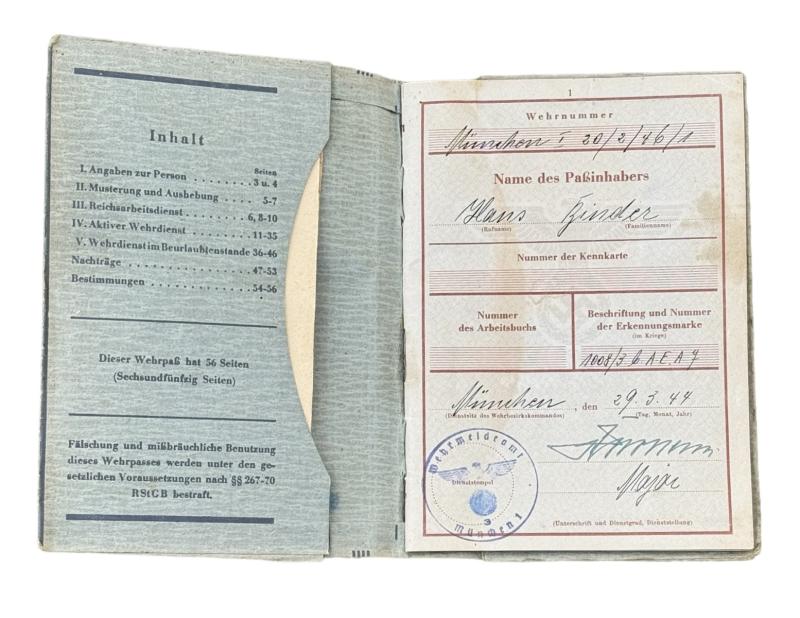 Inhalt
Seiten
I. Angaben zur Person . . . . . . . . 3 u. 4
II. Musterung und Aushebung . . . . 5-7
III. Reichsarbeitsdienst . . . . . . . . 6, 8-10
IV. Aktiver Wehrdienst . . . . . . . . 11-35
V. Wehrdienst im Beurlaubtenstande 36-46
Nachträge . . . . . . . . . . . . . . . 47-53
Bestimmungen . . . . . . . . . . . . 54-56
Dieser Wehrpaß hat 56 Seiten
(Sechsundfünfzig Seiten)
Fälschung und mißbräuchliche Benutzung
dieses Wehrpasses werden unter den ge-
setzlichen Voraussetzungen nach §§ 267-70
RStGB bestraft.
1
Wehrnummer
München I 20/2/46/1
Name des Paßinhabers
Hans Binder
(Rufname) (Familienname)
Nummer der Kennkarte
Nummer
des Arbeitsbuchs
Beschriftung und Nummer
der Erkennungsmarke
(im Kriege)
München, den 29.3.44
(Dienstsitz des Wehrbezirkskommandos) (Tag, Monat, Jahr)
Wehrmeldeamt
Dienststempel
3
München 1
Major
(Unterschrift und Dienstgrad, Dienststellung)